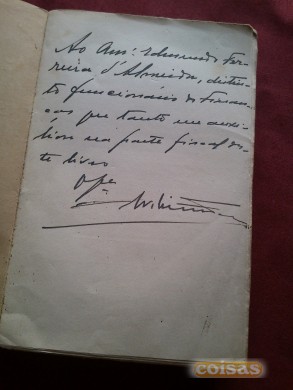 Ao Am.º Edmundo Fer-
reira d'Almeida, distin-
to funcionário de Finan-
ças que tanto me auxi-
liou na parte fiscal des-
te livro
Of.
coisas